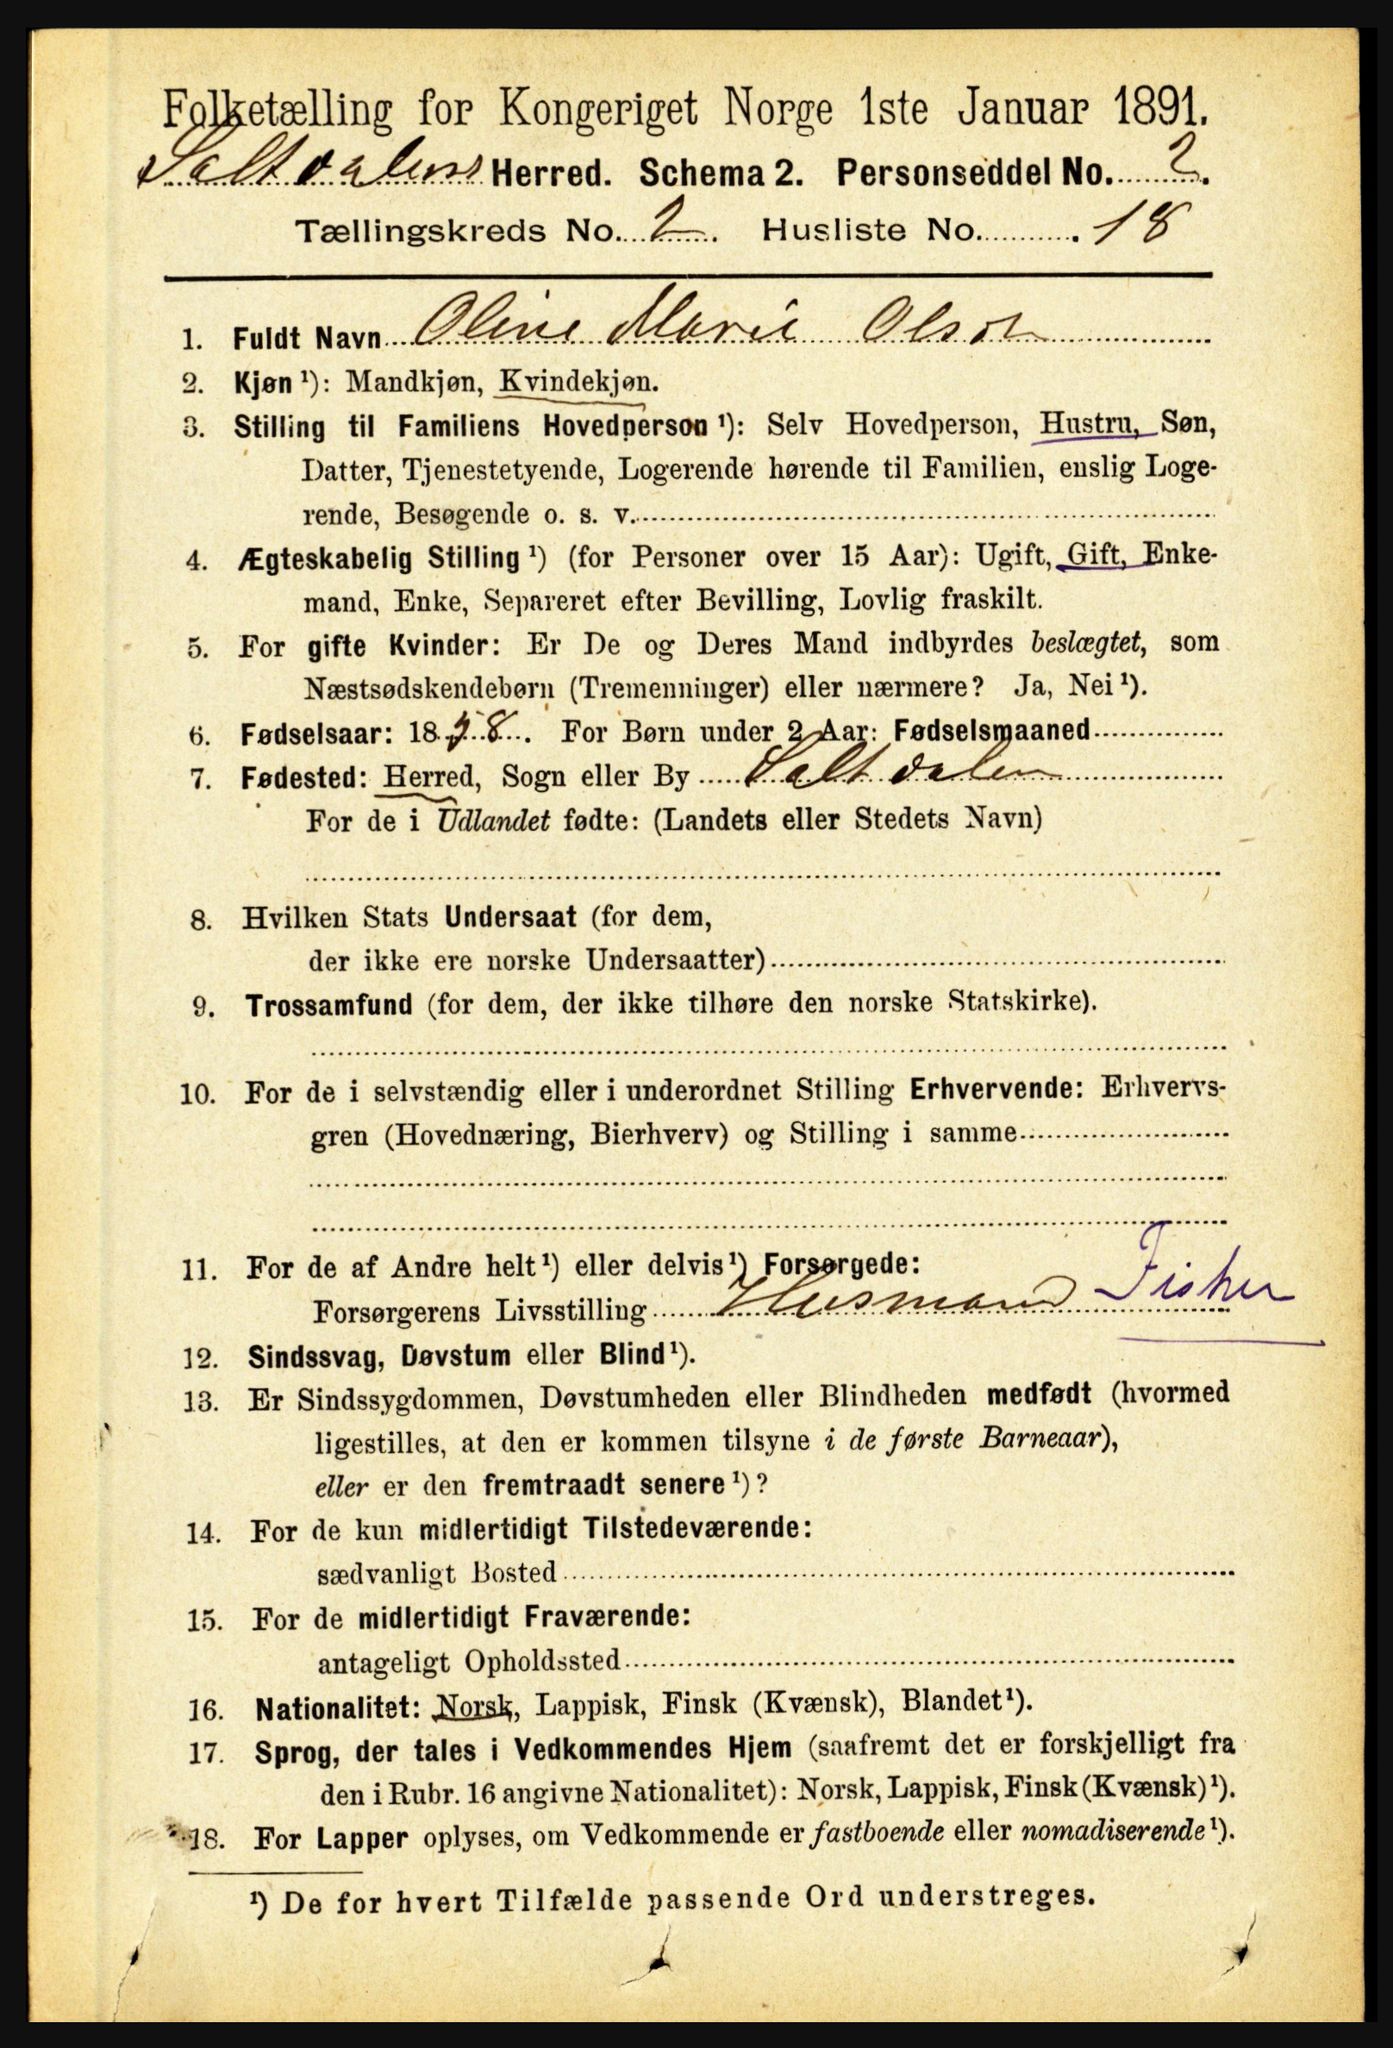 Folketælling for Kongeriget Norge 1ste Januar 1891.
Saltdalens Herred. Schema 2. Personseddel No. 2.
Tællingskreds No. 2. Husliste No. 18
1. Fuldt Navn Oline Marie Olsen
2. Kjøn ¹): Mandkjøn, Kvindekjøn.
3. Stilling til Familiens Hovedperson ¹): Selv Hovedperson, Hustru, Søn,
Datter, Tjenestetyende, Logerende hørende til Familien, enslig Loge-
rende, Besøgende o. s. v.
4. Ægteskabelig Stilling ¹) (for Personer over 15 Aar): Ugift, Gift, Enke-
mand, Enke, Separeret efter Bevilling, Lovlig fraskilt.
5. For gifte Kvinder: Er De og Deres Mand indbyrdes beslægtet, som
Næstsødskendebørn (Tremenninger) eller nærmere? Ja, Nei ¹).
6. Fødselsaar: 18 8. For Børn under 2 Aar: Fødselsmaaned
7. Fødested: Herred, Sogn eller By Saltdalen
For de i Udlandet fødte: (Landets eller Stedets Navn)
8. Hvilken Stats Undersaat (for dem,
der ikke ere norske Undersaatter)
9. Trossamfund (for dem, der ikke tilhøre den norske Statskirke).
10. For de i selvstændig eller i underordnet Stilling Erhvervende: Erhvervs-
gren (Hovednæring, Bierhverv) og Stilling i samme
11. For de af Andre helt ¹) eller delvis ¹) Forsørgede:
Forsørgerens Livsstilling Husmand Fisker
12. Sindssvag, Døvstum eller Blind ¹).
13. Er Sindssygdommen, Døvstumheden eller Blindheden medfødt (hvormed
ligestilles, at den er kommen tilsyne i de første Barneaar),
eller er den fremtraadt senere ¹)?
14. For de kun midlertidigt Tilstedeværende:
sædvanligt Bosted
15. For de midlertidigt Fraværende:
antageligt Opholdssted
16. Nationalitet: Norsk, Lappisk, Finsk (Kvænsk), Blandet ¹).
17. Sprog, der tales i Vedkommendes Hjem (saafremt det er forskjelligt fra
den i Rubr. 16 angivne Nationalitet): Norsk, Lappisk, Finsk (Kvænsk) ¹).
18. For Lapper oplyses, om Vedkommende er fastboende eller nomadiserende ¹).
¹) De for hvert Tilfælde passende Ord understreges.